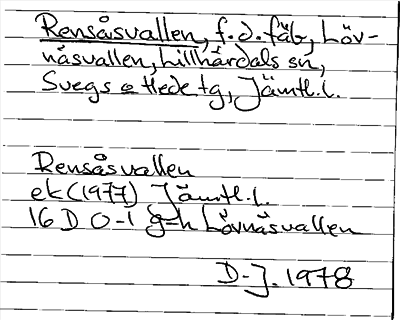 Rensåsvallen, f.d. fäb, Löv-
nåsvallen, Lillhärdals sn,
Svegs o Hede tg, Jämtl.l.
Rensåsvallen
ek (1977) Jämtl.l.
16 D 0-1 g-h Lövnäsvallen
D-J. 1978